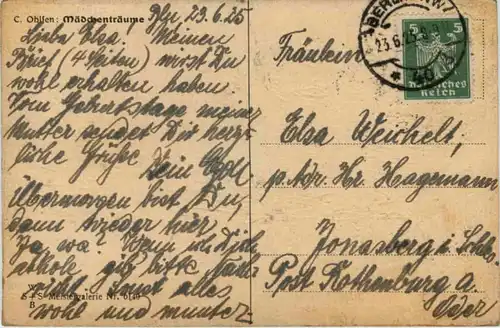 C. Ohlsen: Mädchenträume
Bln. 23.6.25
Liebe Elsa, Meinen
Brief (4 Seiten) wirst Du
wohl erhalten haben.
Vom Geburtstage meiner
Mutter sendet Dir herz-
liche Grüße
Dein
Übermorgen bist Du,
dann wieder hier,
Ja, wa? Wenn ich Dich
abhole, gib bitte Nach-
richt. Sonst alles
wohl und munter
S + S Meistergalerie Nr.
B
BERLIN NW
23.6.25
5 5
Deutsches
Reich
Fräulein
Elsa Weichelt,
p. Adr. Hr. Hagemann
Jonasberg i. Schles.
Post Rothenburg a.
Oder